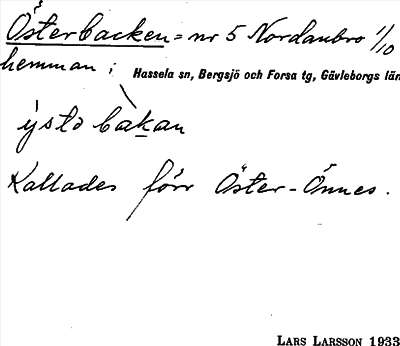 Österbacken = nr 5 Nordanbro 1/10
hemman i Hassela sn, Bergsjö och Forsa tg, Gävleborgs län
ÿstə bàkan
Kallades förr Öster-Önnes.
LARS LARSSON 1933